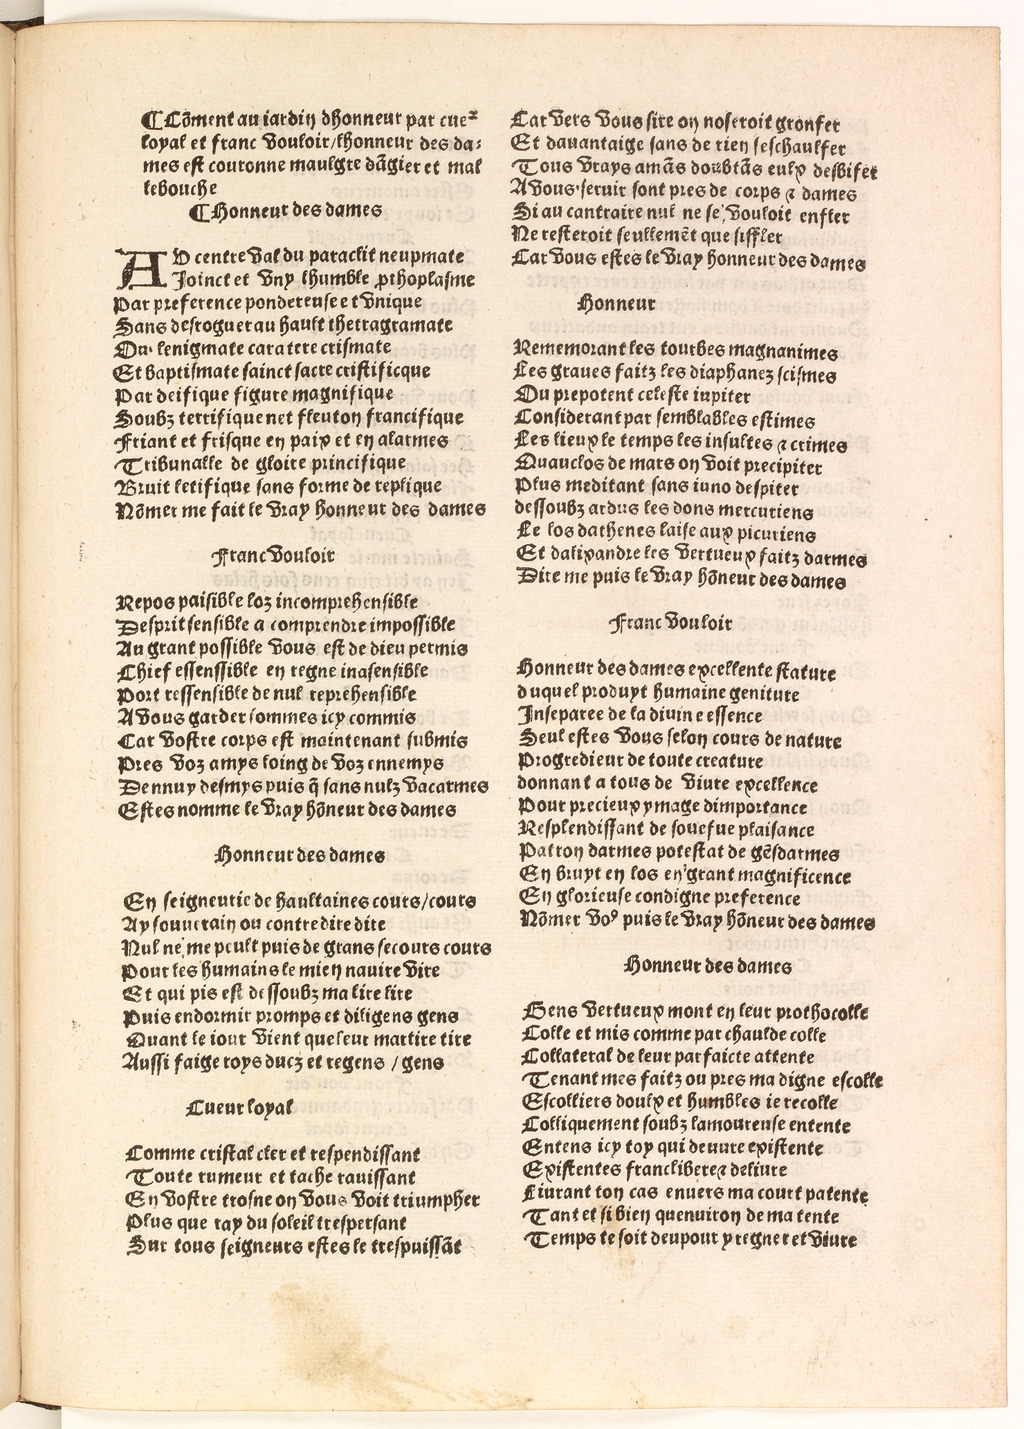 ¶Cõment au iardin dhonneur par cueꝛ
loyal et franc vouloir/lhonneur des da⸗
mes est couronne maulgre dãgier et mal
lebouche
¶Honneur des dames
AD centre val du paraclit neupmate
Joinct et vny lhumble ꝓthoplasme
Par preference pondereuse et vnique
Sans desroguer au hault thetragramate
Ou lenigmate caratere crismate
Et baptismate sainct sacre cristificque
Par deifique figure magnifique
Soubz terrifique net fleuron francifique
Friant et frisque en paix et en alarmes
Tribunalle de gloire principique
Bruit letifique sans forme de replique
Nõmer me fait le vray honneur des dames
Franc vouloir
Repos paisible loz incomprehensible
Desprit sensible a comprendre impossible
Au grant possible vous est de dieu permis
Chief essenssible en regne inasensible
Port ressensible de nul reprehensible
A vous garder sommes icy commis
Car vostre corps est maintenant submis
Pres voz amys loing de voz ennemys
Dennuy desmys puis q̃ sans nulz vacarmes
Estes nomme le vray hõneur des dames
Honneur des dames
En seigneurie de haultaines cours/cours
Ay souuerain ou contredire dite
Nul ne me peult puis de grans secours cours
Pour les humains le mien nauire vire
Et qui pis est dessoubz ma lire lire
Puis endormir promps et diligens gens
Quant le iour vient que leur martire tire
Aussi faige roys ducz et regens /gens
Cueur loyal
Comme cristal cler et respendissant
Toute rumeur et tache rauissant
En vostre trosne on vous voit triumpher
Plus que ray du soleil trespersant
Sur tous seigneurs estes le trespuissãt
Car vers vous sire on noseroit gronser
Et dauantaige sans de rien seschaulfer
Tous vrays amãs doubtãs eulx desbifer
A vous seruir sont pres de corps ⁊ dames
Si au contraire nul ne se vouloit enfler
Ne resteroit seullemẽt que siffler
Car vous estes le vray honneur des dames
Honneur
Rememorant les tourbes magnanimes
Les graues faitz les diaphanez scismes
Du prepotent celeste iupiter
Considerant par semblables estimes
Les lieux le temps les insultes ⁊ crimes
Quauclos de mars on voit precipiter
Plus meditant sans iuno despiter
dessoubz ardus les dons mercuriens
Le los dathenes laise aux picuriens
Et dalixandre les vertueux faitz darmes
Dire me puis le vray hõneur des dames
Franc vouloir
Honneur des dames excellente stature
duquel produyt humaine geniture
Inseparee de la diuine essence
Seul estes vous selon cours de nature
Progredieur de toute creature
donnant a tous de viure excellence
Pour precieux ymage dimportance
Resplendissant de souefue plaisance
Patron darmes potestat de gẽsdarmes
En bruyt en los en grant magnificence
En glorieuse condigne preference
Nõmer voꝰ puis le vray hõneur des dames
Honneur des dames
Gens vertueux mont en leur prothocolle
Colle et mis comme par chaulde colle
Collateral de leur parfaicte attente
Tenant mes faitz ou pres ma digne escolle
Escolliers doulx et humbles ie recolle
Colliquement soubz lamoureuse entente
Entens icy toy qui deuure existente
Existentes franc libere ⁊ deliure
Liurant ton cas enuers ma court patente
Tant et si bien quenuiron de ma tente
Temps te soit deu pour y regner et viure